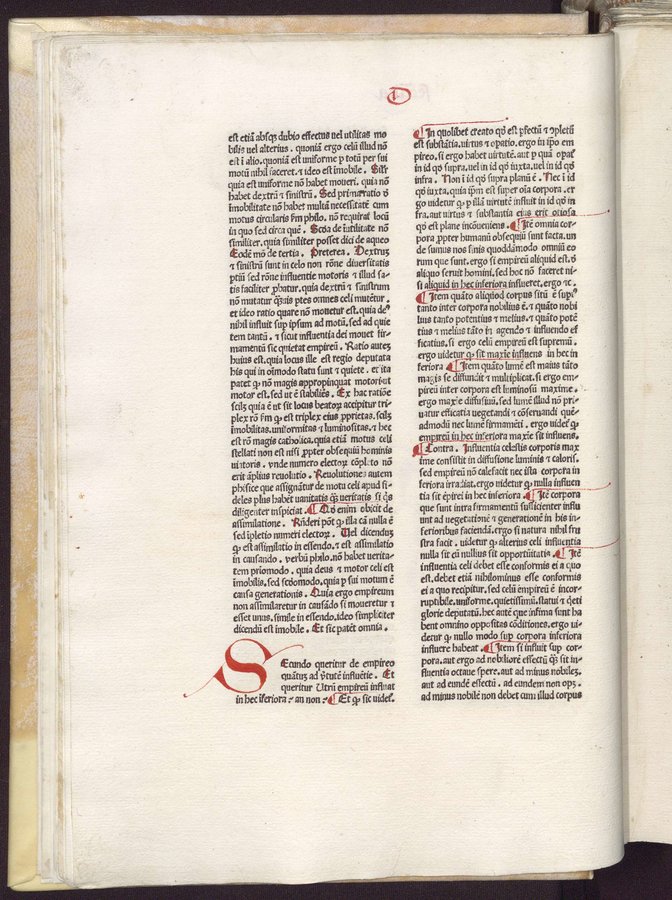 D
est etiā absq̄ dubio effectus vel utilitas mo
bilis vel alterius . quoniā ergo celū illud nō
est ī alio . quoniā est uniforme p totū per sui
motū nihil faceret . et ideo est imobile . Sīr
quia est uniforme nō habet moueri . quia nō
habet dextrā et sinistrā . Sed pria ratio d'
imobilitate nō habet multā necessitatē cum
motus circularis sm philo . nō requirat locū
in quo sed circa quē . Scōa de ītilitate nō
similiter . quia similiter posset dici de aqueo
Eodē mō de tertia . Preterea . Dextruȝ
et sinistrū sunt in celo non rōne diuersitatis
ptiū sed rōne influentie motoris et illud sa-
tis faciliter pbatur . quia dextrū et sinistrum
nō mutatur q̄uis ptes omnes celi mutētur .
et ideo ratio quare nō mouetur est . quia de9
nihil influit sup ipsum ad motū . sed ad quie
tem tantū . et sicut influentia dei mouet fir-
mamentū sic quietat empireū . Ratio auteȝ
huius est . quia locus ille est regio deputata
his qui in oīmodo statu sunt et quiete . et ita
patet q nō magis appropinquat motori ut
motor est . sed ut ē stabiliēs . Ex hac ratiōe
scilȝ quia ē ut sit locus beatorȝ accipitur tri-
plex rō fm q est triplex eius pprietas . scilȝ
imobilitas . uniformitas et luminositas . et hec
est rō magis catholica . quia etiā motus celi
stellati non est nisi ppter obsequiū hominis
viatoris . vnde numero electorȝ cōpleto nō
erit āplius reuolutio . Reuolutiones autem
phisice que assignātur de motu celi apud fi-
deles plus habet uanitatis q̄ ueritatis si q̄s
diligenter inspiciat . Qd' enim obicit de
assimilatione . Rn̄deri pōt q illa cā nulla ē
sed īpletio numeri electorȝ . Vel dicenduȝ
q est assimilatio in essendo . et est assimilatio
in causando . verbū philo . nō habet uerita-
tem priomodo . quia deus et motor celi est
imobilis . sed scōomodo . quia p sui motum ē
causa generationis . Quia ergo empireum
non assimilaretur in causādo si moueretur et
esset unus . simile in essendo . ideo simpliciter
dicendū est imobile . Et sic patēt omnia .
SEcundo queritur de empireo
quātuȝ ad v̄tutē influētie . Et
queritur Utrū empireū influat
in hec īferiora : an non : Et q sic videt .
In quolibet creato qd' est pfectū et ɔpletū
est substātia . uirtus et opatio . ergo in ipo em
pireo . si ergo habet uirtutē . aut p quā opat
in id qd' supra . uel in id qd' iuxta . uel in id qd'
infra . Non ī id qd' supra planū ē . Nec ī id
qd' iuxta . quia ipm est super oīa corpora . er
go uidetur q p illā uirtutē influit in id qd' in
fra . aut uirtus et substantia eius erit otiosa
qd' est plane incōueniens . Itē omnia cor-
pora ppter humanū obsequiū sunt facta . un
de sumus nos finis quodāmodo omniū eo
rum que sunt . ergo si empireū aliquid est . d'
aliquo seruit homini . sed hoc nō faceret ni-
si aliquid in hec inferiora influeret . ergo ꝛc .
Item quāto aliquod corpus sitū ē supi9
tanto inter corpora nobilius ē . et quāto nobi
lius tanto potentius et melius . et quāto potē
tius et melius tāto in agendo et influendo ef
ficatius . si ergo celū empireū est supremū .
ergo uidetur q sit maxīe influens in hec in
feriora Item quāto lumē est maius tāto
magis se diffundit et multiplicat . si ergo em-
pireū inter corpora est luminosū maxime .
ergo maxīe diffusiuū . sed lumē illud nō pri-
uatur efficatia uegetandi et cōseruandi quē-
admodū nec lumē firmamēti . ergo videt q
empireū in hec inferiora maxīe sit influens .
Contra . Influentia celestis corporis max
īme consistit in diffusione luminis et caloris .
sed empireū nō calefacit nec ista corpora in
feriora irradiat . ergo uidetur q nulla influen
tia sit epirei in hec inferiora . Itē corpora
que sunt intra firmamentū sufficienter influ
unt ad uegetationē et generationē in his in-
ferioribus faciendā . ergo si natura nihil fru
stra facit . uidetur q alterius celi influentia
nulla sit cū nullius sit opportūitatis . Itē
influentia celi debet esse conformis ei a quo
est . debet etiā nihilominus esse conformis
ei a quo recipitur . sed celū empireū ē incor-
ruptibile . uniforme . quietissimū . statui et q̄eti
glorie deputatū . hec autē que infima sunt ha
bent omnino oppositas cōditiones . ergo ui-
detur q nullo modo sup corpora inferiora
influere habeat . Item si influit sup cor-
pora . aut ergo ad nobiliorē effectū q̄ sit in-
fluentia octaue spere . aut ad minus nobileȝ .
aut ad eundē effectū . ad eundem non opȝ .
ad minus nobilē non debet cum illud corpus